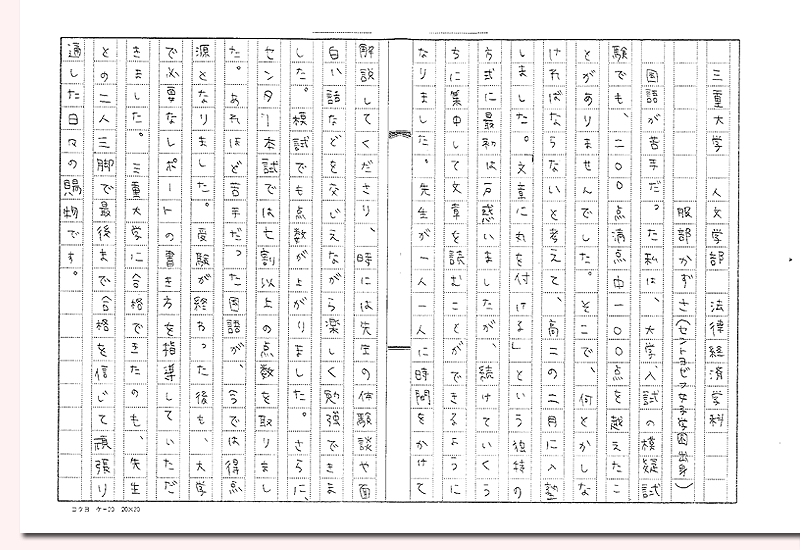 三重大学 人文学部 法律経済学科
服部かずさ(セントヨゼフ女子学園出身)
国語が苦手だった私は、大学入試の模擬試
験でも、二〇〇点満点中一〇〇点を越えたこ
とがありませんでした。そこで、何とかしな
ければならないと考えて、高二の二月に入塾
しました。「文章に丸を付ける」という独特の
方式に最初は戸惑いましたが、続けていくう
ちに集中して文章を読むことができるように
なりました。先生が一人一人に時間をかけて
解説してくださり、時には先生の体験談や面
白い話などを交じえながら楽しく勉強できま
した。模試でも点数が上がりました。さらに、
センター本試では七割以上の点数を取りまし
た。あれほど苦手だった国語が、今では得点
源となりました。受験が終わった後も、大学
で必要なレポートの書き方を指導していただ
きました。三重大学に合格できたのも、先生
との二人三脚で最後まで合格を信じて頑張り
通した日々の賜物です。
コクヨ ケー20 20×20